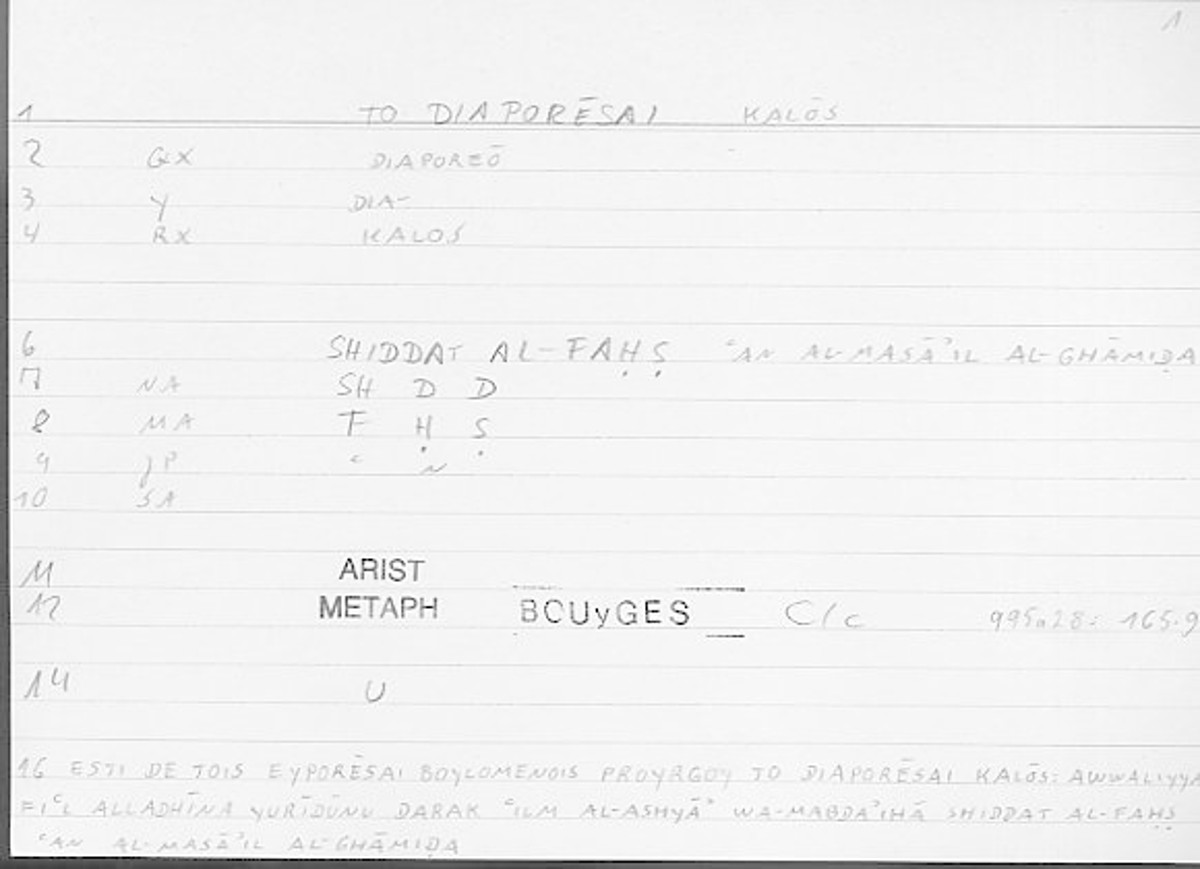 1
1 TO DIAPORĒSAI KALŌS
2 GX DIAPOREŌ
3 Y DIA-
4 RX KALOS
6 SHIDDAT AL-FAḤṢ ʿAN AL-MASĀʾIL AL-GHĀMIḌA
7 NA SH D D
8 MA F Ḥ Ṣ
9 JP ʿ N
10 SA
11 ARIST
12 METAPH BOUyGES C/c 995a28: 165.9
14 U
16 ESTI DE TOIS EYPORĒSAI BOYLOMENOIS PROYRGOY TO DIAPORĒSAI KALŌS: AWWALIYYA
FIʿL ALLADHĪNA YURĪDŪNU DARAK ʿILM AL-ASHYĀʾ WA-MABDAʾIHĀ SHIDDAT AL-FAḤṢ
ʿAN AL-MASĀʾIL AL-GHĀMIḌA